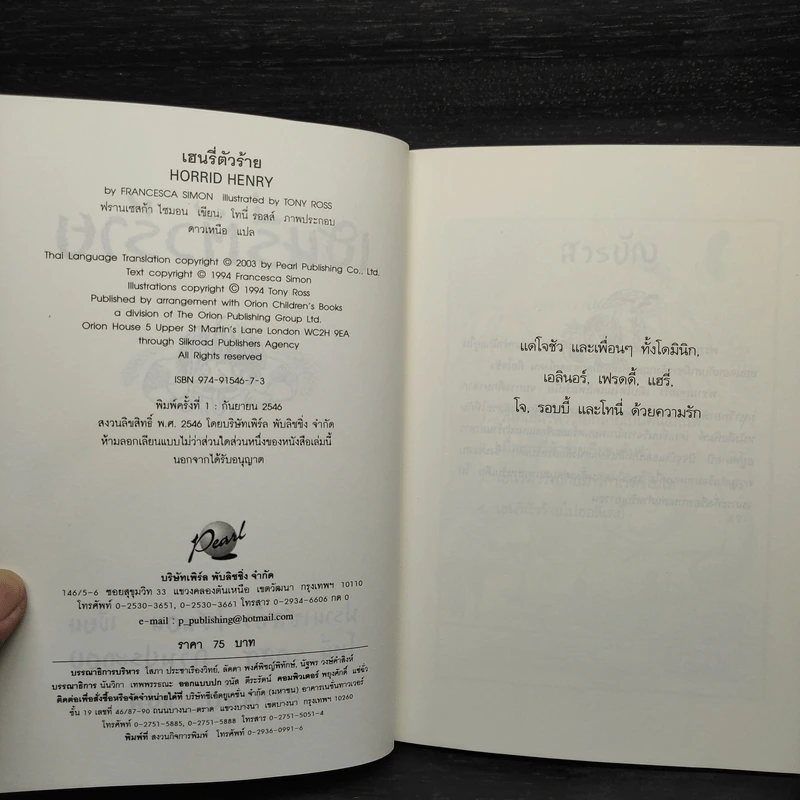 เฮนรี่ตัวร้าย
HORRID HENRY
by FRANCESCA SIMON illustrated by TONY ROSS
ฟรานเซสก้า ไซมอน เขียน, โทนี่ รอสส์ ภาพประกอบ
ดาวเหนือ แปล
Thai Language Translation copyright © 2003 by Pearl Publishing Co., Ltd.
Text copyright © 1994 Francesca Simon
Illustrations copyright © 1994 Tony Ross
Published by arrangement with Orion Children's Books
a division of The Orion Publishing Group Ltd.
Orion House 5 Upper St Martin's Lane London WC2H 9EA
through Silkroad Publishers Agency
All Rights reserved
ISBN 974-91546-7-3
พิมพ์ครั้งที่ 1 : กันยายน 2546
สงวนลิขสิทธิ์ พ.ศ. 2546 โดยบริษัทเพิร์ล พับลิชชิ่ง จำกัด
ห้ามลอกเลียนแบบไม่ว่าส่วนใดส่วนหนึ่งของหนังสือเล่มนี้
นอกจากได้รับอนุญาต
Pearl
บริษัทเพิร์ล พับลิชชิ่ง จำกัด
146/5-6 ซอยสุขุมวิท 33 แขวงคลองตันเหนือ เขตวัฒนา กรุงเทพฯ 10110
โทรศัพท์ 0-2530-3651, 0-2530-3661 โทรสาร 0-2934-6606 กด 0
e-mail : p_publishing@hotmail.com
ราคา 75 บาท
บรรณาธิการบริหาร โสภา ประชาเรืองวิทย์, ลัดดา พงศ์พิชญ์พิทักษ์, นัฐพร วงษ์คำสิงห์
บรรณาธิการ นันวิกา เทพพรรณะ ออกแบบปก วนัส ตีระรัตน์ คอมพิวเตอร์ พยุงศักดิ์ แซ่ฉั่ว
ติดต่อเพื่อสั่งซื้อหรือจัดจำหน่ายได้ที่ บริษัทซีเอ็ดยูเคชั่น จำกัด (มหาชน) อาคารเนชั่นทาวเวอร์
ชั้น 19 เลขที่ 46/87-90 ถนนบางนา-ตราด แขวงบางนา เขตบางนา กรุงเทพฯ 10260
โทรศัพท์ 0-2751-5885, 0-2751-5888 โทรสาร 0-2751-5051-4
พิมพ์ที่ สงวนกิจการพิมพ์ โทรศัพท์ 0-2936-0991-6
แด่โจชัว และเพื่อนๆ ทั้งโดมินิก,
เอลินอร์, เฟรดดี้, แฮรี่,
โจ, รอบบี้ และโทนี่ ด้วยความรัก